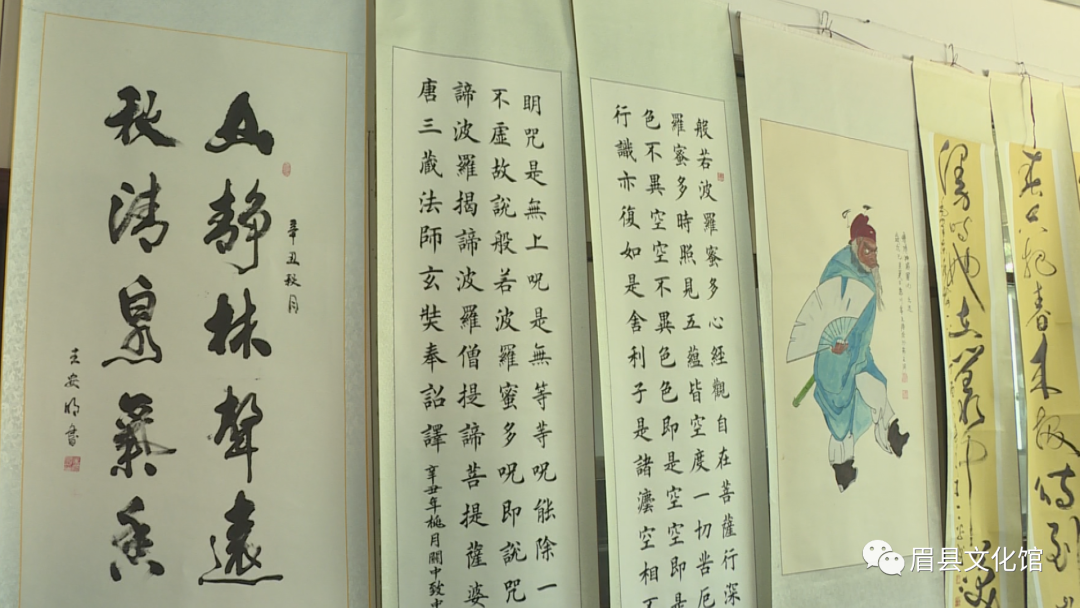 山静林聲遠
辛丑秋月
秋清泉氣香
王安明書
明咒是無上咒是無等等咒能除一
不虛故說般若波羅蜜多咒即說咒
諦波羅揭諦波羅僧揭諦菩提薩婆
唐三藏法師玄奘奉詔譯 辛丑年桃月關中致中
般若波羅蜜多心經觀自在菩薩行深
羅蜜多時照見五蘊皆空度一切苦厄
色不異空空不異色色即是空空即是
行識亦復如是舍利子是諸灋空相不
春只把春来報待到
漫時她在叢中
眉县文化馆